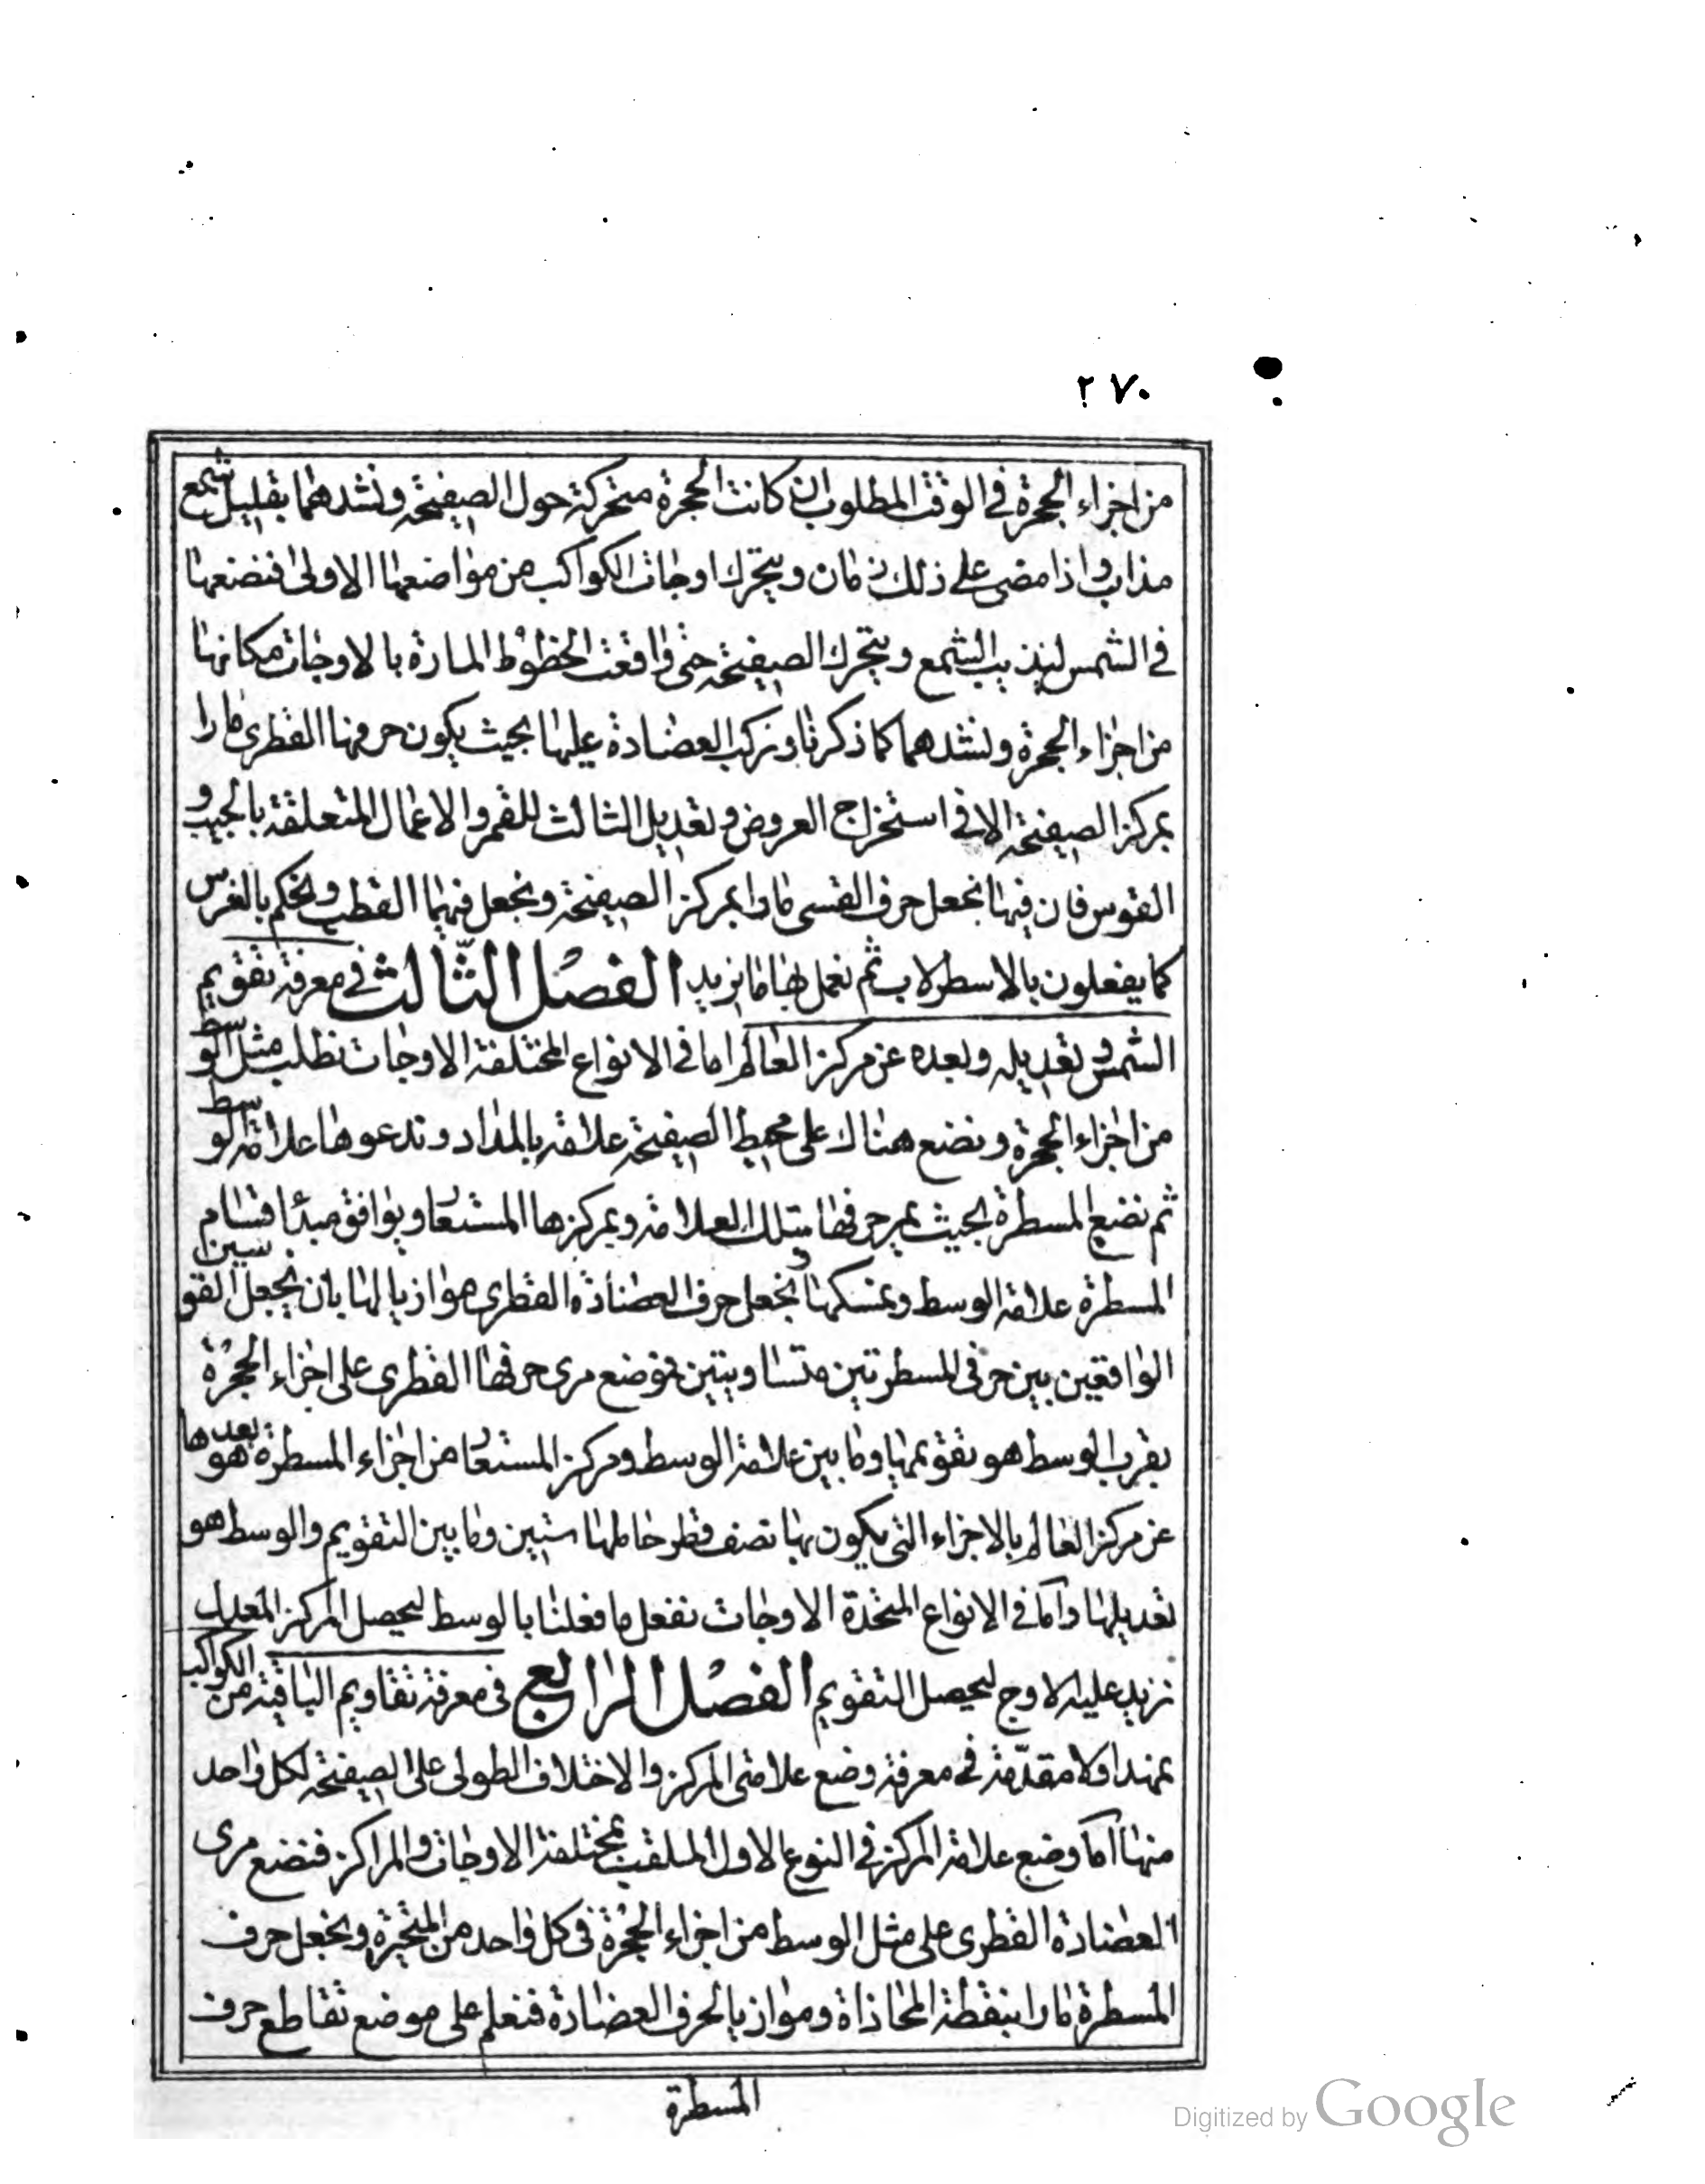 ٢٧٠
من اجزاء الحجرة فى الوقت المطلوب ان كانت الحجرة متحركة حول الصفيحة ونشدهما بقليل شمع
مذاب واذا مضى على ذلك زمان ويتحرك اوجات الكواكب من مواضعها الاولى فنضعها
فى الشمس ليذيب الشمع ويتحرك الصفيحة حتى واقعت الخطوط المارة بالاوجات مكانها
من اجزاء الحجرة ونشدهما كما ذكرنا ونركب العضادة عليها بحيث يكون حرفها القطرى مارا
بمركز الصفيحة الا فى استخراج العروض وتعديل الثالث للقمر والاعمال المتعلقة بالجيب و
القوس فان فيها نجعل حرف القسى مارا بمركز الصفيحة ونجعل فيها القطب ونحكم بالفرس
كما يفعلون بالاسطرلاب ثم نعمل بها ما نريد الفصل الثالث فى معرفة تقويم
الشمس وتعديله وبعده عن مركز العالم اما فى الانواع المختلفة الاوجات نطلب مثل الوسط
من اجزاء الحجرة ونضع هناك على محيط الصفيحة علامة بالمداد وندعوها علامة الوسط
ثم نضع المسطرة بحيث يمر حرفها بتلك العلامة وبمركزها المستعا ويوافق مبدأ اقسام
المسطرة علامة الوسط ونمسكها ونجعل حرف العضادة القطرى موازيا لها بان يجعل القوسين
الواقعين بين حرفى المسطرتين متساويتين فموضع مرى حرفها القطرى على اجزاء الحجرة
بقرب الوسط هو تقويمها وما بين علامة الوسط ومركز المستعا من اجزاء المسطرة هو بعدها
عن مركز العالم بالاجزاء التى يكون بها نصف قطر حاملها ستين وما بين التقويم والوسط هو
تعديلها واما فى الانواع المتحدة الاوجات نفعل ما فعلنا بالوسط ليحصل المركز المعدل
نزيد عليه الاوج ليحصل التقويم الفصل الرابع فى معرفة تقاويم الباقية من الكواكب
نمهد اولا مقدمة فى معرفة وضع علامتى المركز والاختلاف الطولى على الصفيحة لكل واحد
منها اما وضع علامة المركز فى النوع الاول الملقب بمختلفة الاوجات والمراكز فنضع مرى
العضادة القطرى على مثل الوسط من اجزاء الحجرة فى كل واحد من المتحيرة ونجعل حرف
المسطرة مارا بنقطة المحاذاة وموازيا لحرف العضادة فنعلم على موضع تقاطع حرف
المسطرة
Digitized by Google